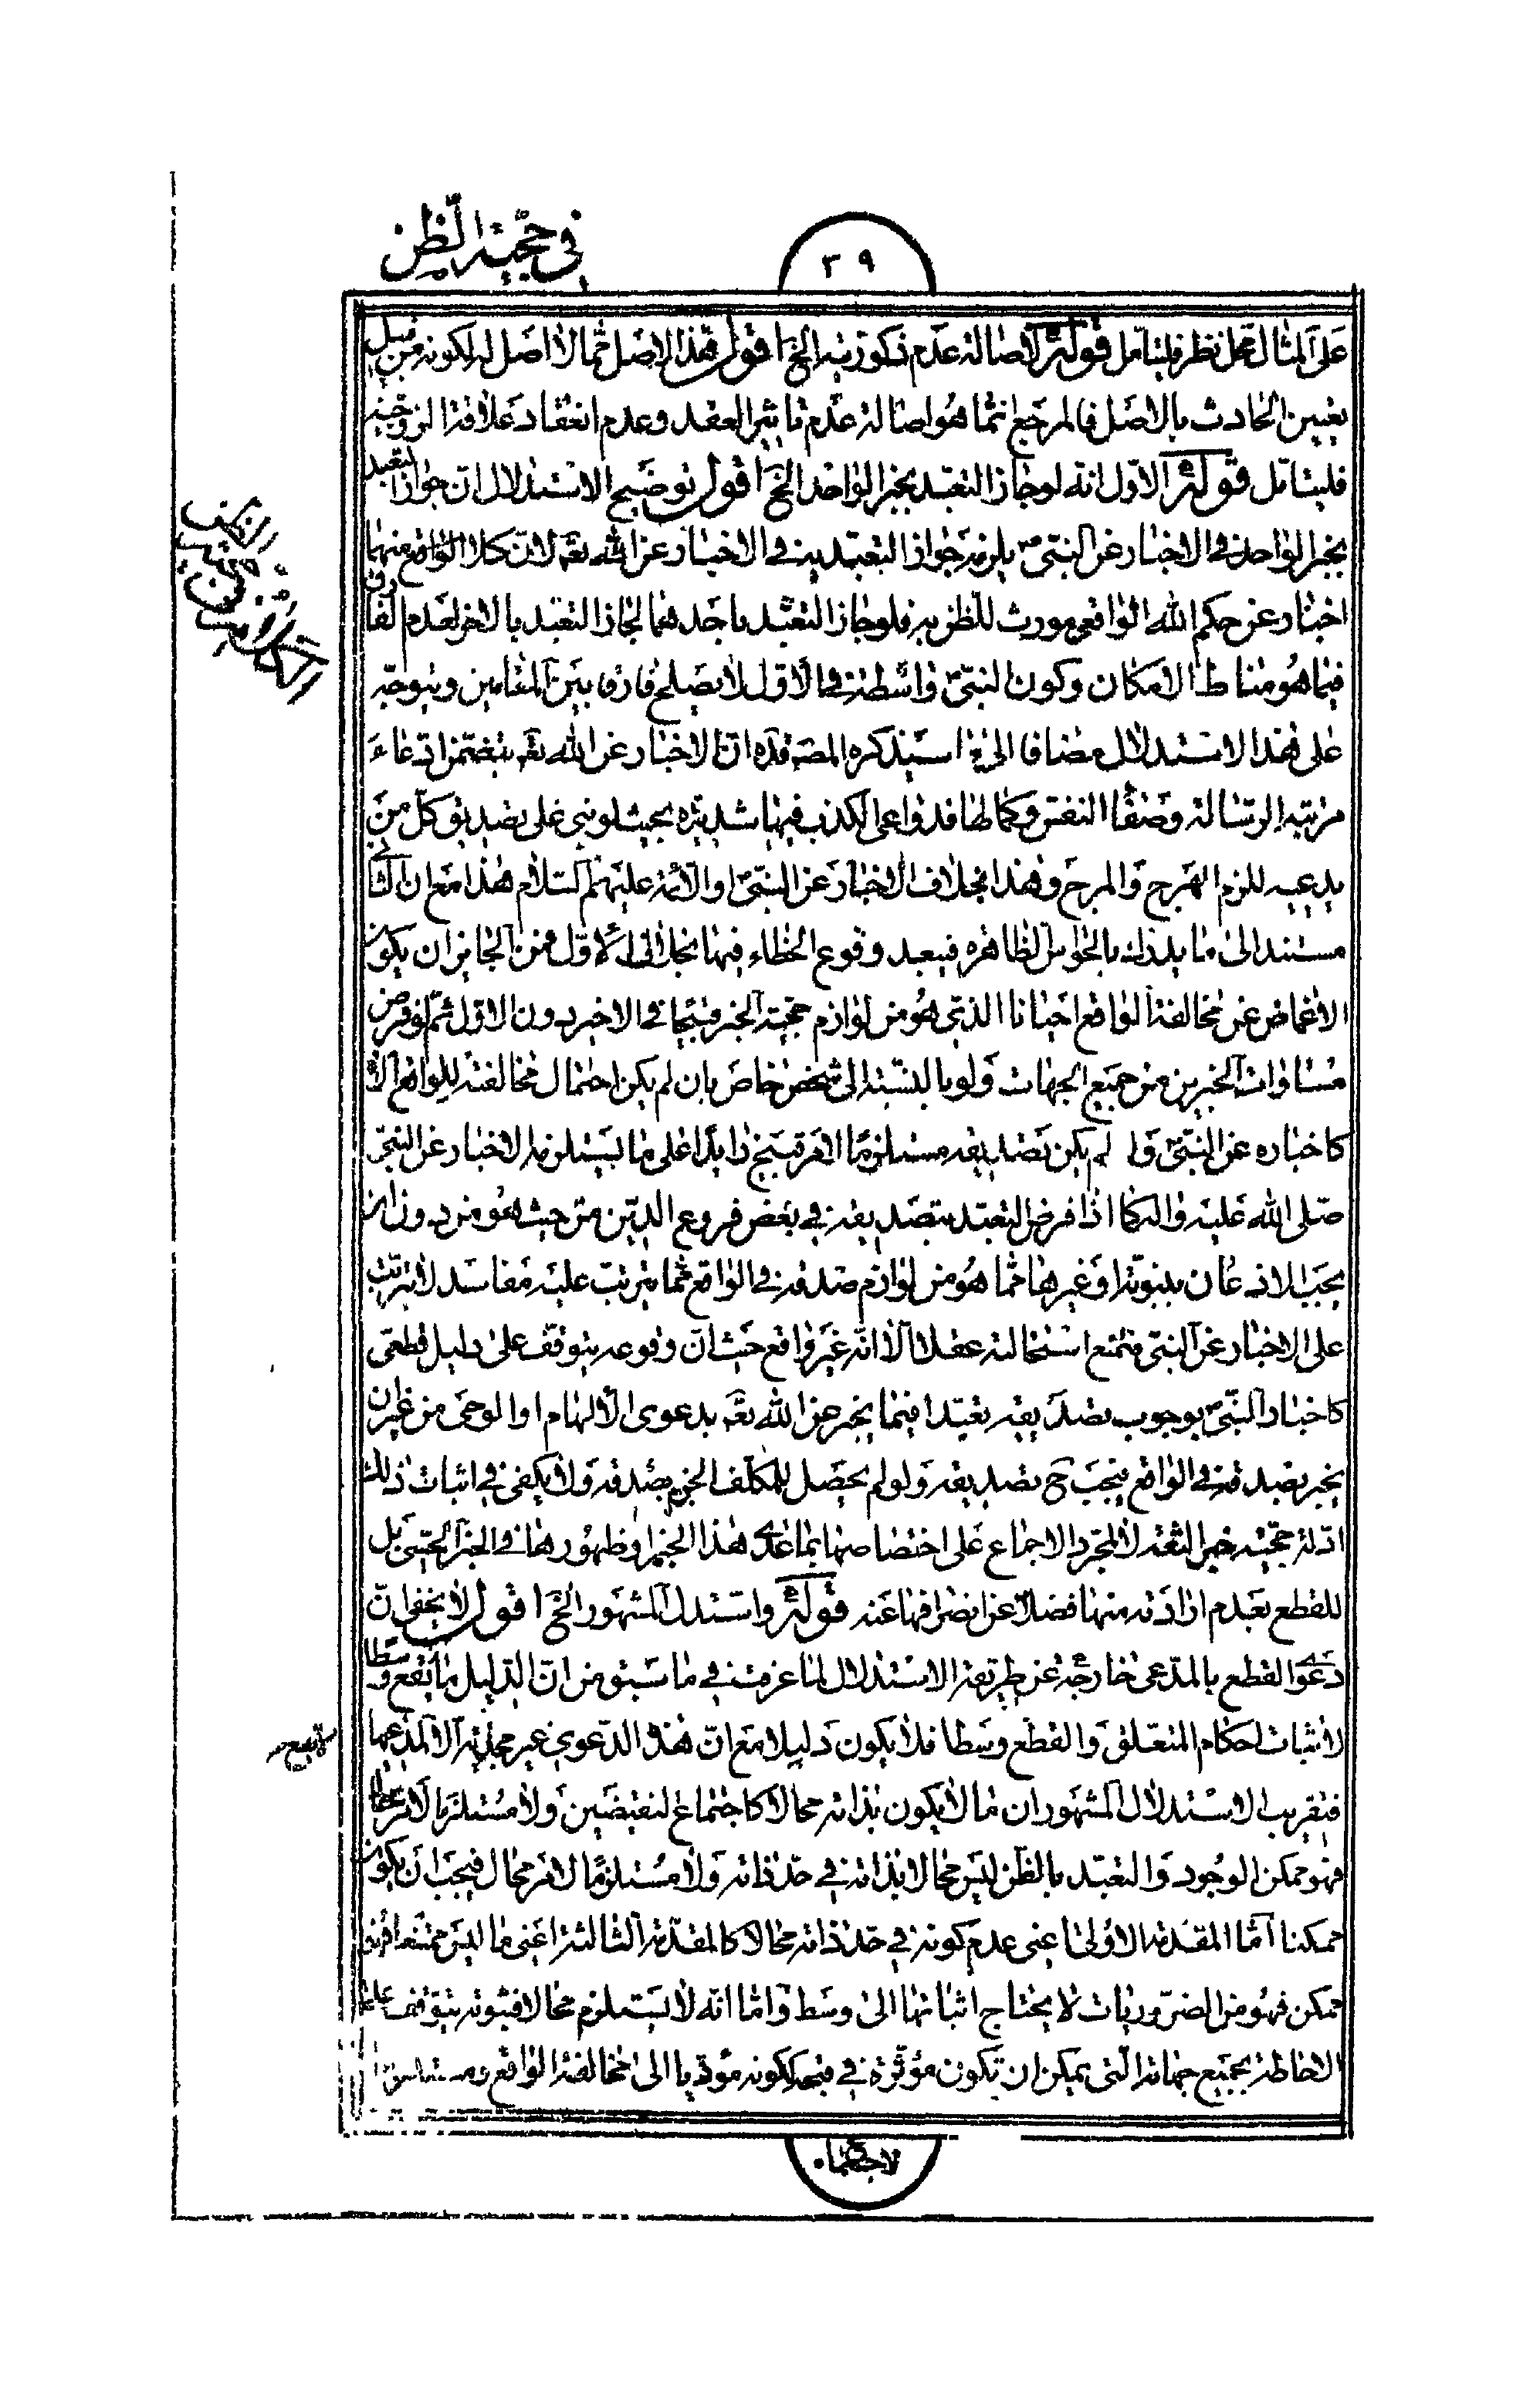 في حجية الظن
٣٩
على المثال محل نظر فليتأمل قوله لأصالة عدم ذكوريته الخ اقول هذا الاصل مما لا اصل له لكونه من قبيل
تعيين الحادث بالاصل فالمرجع انما هو اصالة عدم تاثير العقد وعدم انعقاد علاقة الزوجية
فليتامّل قوله الاوّل انه لو جاز التعبّد بخبر الواحد الخ اقول توضيح الاستدلال ان جواز التعبد
بخبر الواحد في الاخبار عن النبيّ ص يلزمه جواز التعبّد به في الاخبار عن الله تعه لانّ كلا منهما
اخبار عن حكم الله الواقعي مورث للظن به فلو جاز التعبّد باحدهما لجاز التعبّد بالاخر لعدم الفارق
فيما هو مناط الامكان وكون النبيّ واسطة في الاوّل لا يصلح فارقا بين المقامين ويتوجّه
على هذا الاستدلال مضافا الى ما سيذكره المصه قده انّ الاخبار عن الله تعه يتضمّن ادّعاء
مرتبة الرّسالة وصفاء النفس وكمالها فدواعي الكذب فيها شديدة بحيث لو بني على تصديق كلّ من
يدعيه للزم الهرج والمرج وهذا بخلاف الاخبار عن النبيّ او الائمة عليهم السّلام هذا مع ان الثاني
مستند الى ما يدرك بالحواس الظاهرة فيبعد وقوع الخطاء فيها بخلاف الاوّل فمن الجايز ان يكون
الاغماض عن مخالفة الواقع احيانا الذي هو من لوازم حجية الخبر قبيحا في الاخير دون الاوّل ثمّ لو فرض
مساوات الخبرين من جميع الجهات ولو بالنسبة الى شخص خاص بان لم يكن احتمال مخالفته للواقع الا
كاخباره عن النبيّ ولم يكن تصديقه مستلزما لامر قبيح زايدا على ما يستلزمه الاخبار عن النبيّ
صلى الله عليه واله كما اذا فرض التعبّد بتصديقه في بعض فروع الدين من حيث هو من دون ان
يجب الاذعان بنبوته او غيرها مما هو من لوازم صدقه في الواقع مما يترتب عليه مفاسد لا يترتب
على الاخبار عن النبي فتمنع استحالته عقلا الا انّه غير واقع حيث انّ وقوعه يتوقف على دليل قطعي
كاخبار النبيّ بوجوب تصديقه تعبّدا فيما يخبر عن الله تعه بدعوى الالهام او الوحى من غير ان
يخبر بصدقه في الواقع فيجب ح تصديقه ولو لم يحصل للمكلف الجزم بصدقه ولا يكفى في اثبات ذلك
ادلة حجية خبر الثقة لا لمجرد الاجماع على اختصاصها بما عدى هذا الخبر او ظهورها في الخبر الحسّي بل
للقطع بعدم ارادته منها فضلا عن انصرافها عنه قوله واستدل المشهور الخ اقول لا يخفى انّ
دعوى القطع بالمدّعى خارجة عن طريقة الاستدلال لما عرفت في ما سبق من انّ الدليل ما يقع وسطا
لاثبات احكام المتعلق والقطع وسطا فلا يكون دليلا مع انّ هذه الدّعوى غير مجدية الا لمدّعيها
لا يقع صح
فتقريب الاستدلال المشهور ان ما لا يكون بذاته محالا كاجتماع النقيضين ولا مستلزما لامر محال
فهو ممكن الوجود والتعبّد بالظن ليس محالا بذاته في حدّ ذاته ولا مستلزما لامر محال فيجب ان يكون
ممكنا امّا المقدّمة الاولى اعنى عدم كونه في حدّ ذاته محالا كالمقدّمة الثالثة اعنى ما ليس ممتنعا فهو
ممكن فهو من الضروريات لا يحتاج اثباتها الى وسط وامّا انّه لا يستلزم محالا فثبوته يتوقف على
الاحاطة بجميع جهاته الّتى يمكن ان تكون مؤثرة في قبحه ككونه مؤدّيا الى مخالفة الواقع ومستلزما
لاجتماع